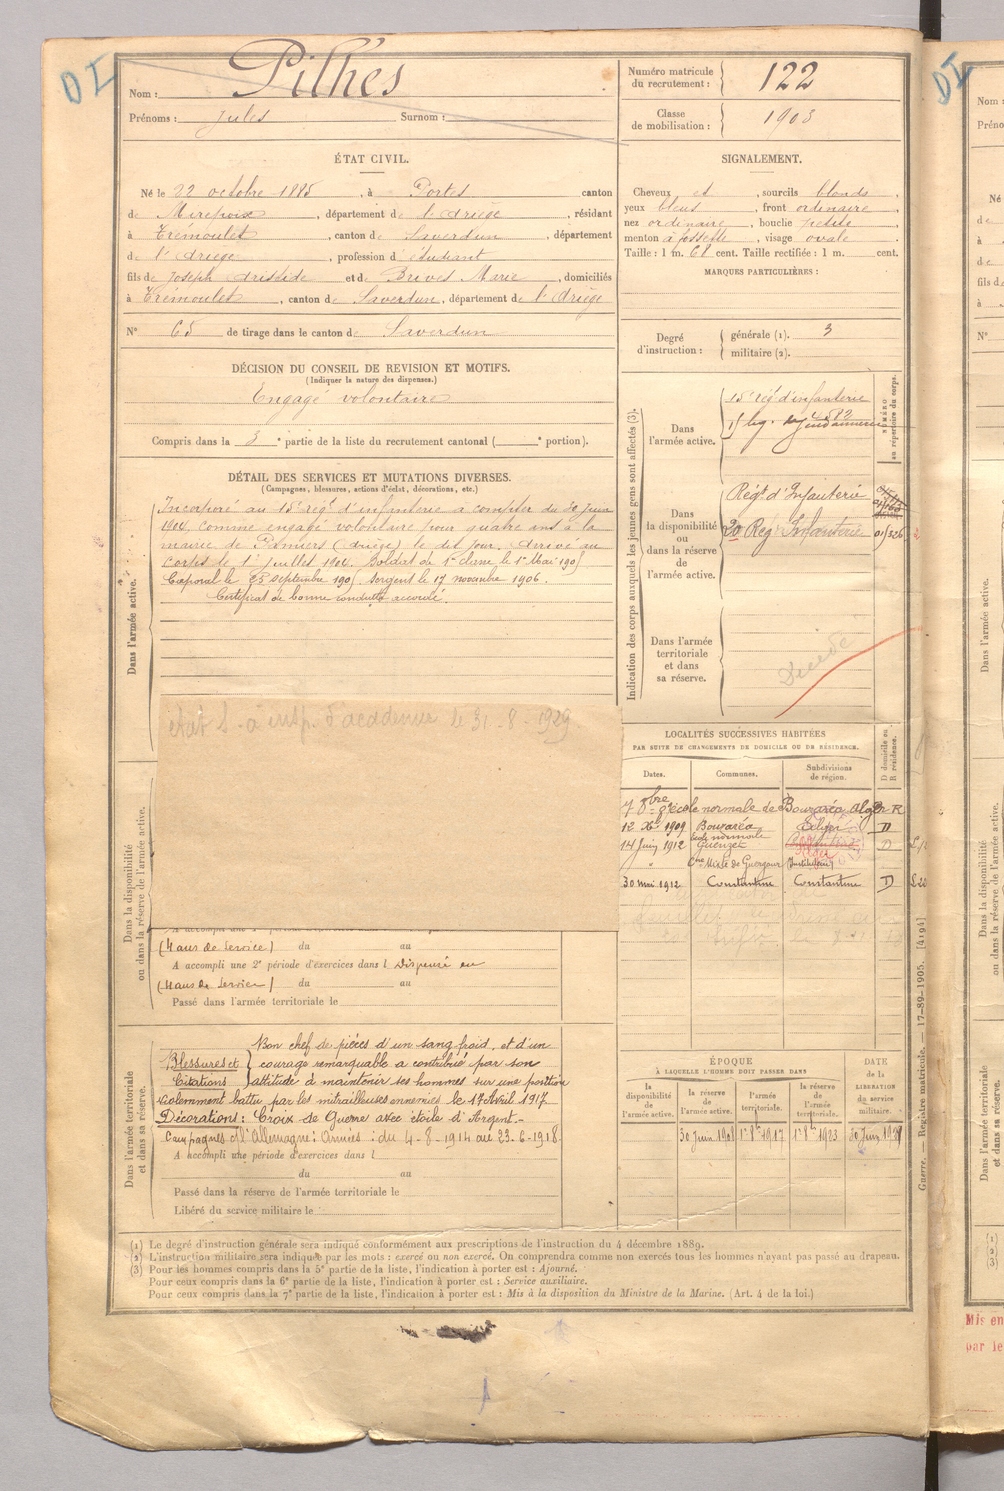 DI
Nom : Pilhes
Prénoms : Jules Surnom :
Numéro matricule du recrutement : 122
Classe de mobilisation : 1903
ÉTAT CIVIL.
Né le 22 octobre 1885, à Portes canton
de Mirepoix, département de l'Ariège, résidant
à Trémoulet, canton de Saverdun, département
de l'Ariège, profession d'étudiant
fils de Joseph Aristide et de Brives Marie, domiciliés
à Trémoulet, canton de Saverdun, département de l'Ariège
N° 65 de tirage dans le canton de Saverdun
SIGNALEMENT.
Cheveux et, sourcils blonds,
yeux bleus, front ordinaire,
nez ordinaire, bouche petite,
menton à fossette, visage ovale.
Taille : 1 m. 68 cent. Taille rectifiée : 1 m. cent.
MARQUES PARTICULIÈRES :
Degré d'instruction : générale (1). 3
militaire (2).
DÉCISION DU CONSEIL DE REVISION ET MOTIFS.
(Indiquer la nature des dispenses.)
Engagé volontaire
Compris dans la 3e partie de la liste du recrutement cantonal ( e portion).
DÉTAIL DES SERVICES ET MUTATIONS DIVERSES.
(Campagnes, blessures, actions d'éclat, décorations, etc.)
Dans l'armée active.
Incorporé au 15e régt d'infanterie à compter du 30 juin
1904, comme engagé volontaire pour quatre ans à la
mairie de Pamiers (Ariège) le dit jour. Arrivé au
corps le 1er juillet 1904. Soldat de 1e classe le 1er Mai 1905
Caporal le 25 septembre 1905 Sergent le 17 novembre 1906.
Certificat de bonne conduite accordé.
Indication des corps auxquels les jeunes gens sont affectés (3).
NUMÉRO au répertoire du corps.
Dans l'armée active.
15e régt d'infanterie
Dans la disponibilité ou dans la réserve de l'armée active.
Régt d'Infanterie
20 Reg Infanterie
Dans l'armée territoriale et dans sa réserve.
Décédé
état S. à insp. d'académie le 31-8-1929
LOCALITÉS SUCCESSIVES HABITÉES
PAR SUITE DE CHANGEMENTS DE DOMICILE OU DE RÉSIDENCE.
Dates. Communes. Subdivisions de région. D domicile ou R résidence.
école normale de Bouzaréa Alger R
12 Xbre 1909 Bouzaréa Alger D
école normale
14 Juin 1912 Guenzet D
Cne Mixte de Guergour (Instituteur)
30 mai 1912 Constantine Constantine D
Dans la disponibilité ou dans la réserve de l'armée active.
(4 ans de service) du au
A accompli une 2e période d'exercices dans l Dispensé en
(4 ans de service) du au
Passé dans l'armée territoriale le
Dans l'armée territoriale et dans sa réserve.
Blessures et Citations
Bon chef de pièces d'un sang froid, et d'un
courage remarquable a contribué par son
attitude à maintenir ses hommes sur une position
violemment battu par les mitrailleuses ennemies le 17 Avril 1917
Décorations : Croix de Guerre avec étoile d'Argent.-
Campagnes c/ l'Allemagne : Armées : du 4-8-1914 au 23-6-1918
A accompli une période d'exercices dans l
du au
Passé dans la réserve de l'armée territoriale le
Libéré du service militaire le
ÉPOQUE
À LAQUELLE L'HOMME DOIT PASSER DANS
la disponibilité de l'armée active.
la réserve de l'armée active.
l'armée territoriale.
la réserve de l'armée territoriale.
DATE de la LIBÉRATION du service militaire.
30 Juin 1908 1er 8bre 1917 1er 8bre 1923
Guerre. — Registre matricule. — 17-89-1905. [4194]
(1) Le degré d'instruction générale sera indiqué conformément aux prescriptions de l'instruction du 4 décembre 1889.
(2) L'instruction militaire sera indiquée par les mots : exercé ou non exercé. On comprendra comme non exercés tous les hommes n'ayant pas passé au drapeau.
(3) Pour les hommes compris dans la 5e partie de la liste, l'indication à porter est : Ajourné.
Pour ceux compris dans la 6e partie de la liste, l'indication à porter est : Service auxiliaire.
Pour ceux compris dans la 7e partie de la liste, l'indication à porter est : Mis à la disposition du Ministre de la Marine. (Art. 4 de la loi.)
DI
Mis en
par le